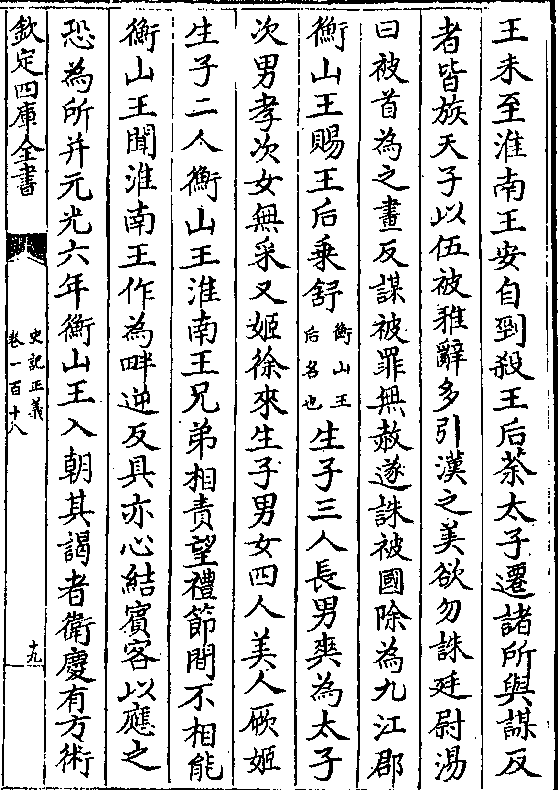 王未至淮南王安自剄殺王后荼太子遷諸所與謀反
者皆族天子以伍被雅辭多引漢之美欲勿誅廷尉湯
曰被首為之畫反謀被罪無赦遂誅被國除為九江郡
衡山王賜王后乗舒衡山王后名也生子三人長男爽為太子
次男孝次女無采又姬徐來生子男女四人美人厥姬
生子二人衡山王淮南王兄弟相責望禮節間不相能
衡山王聞淮南王作為畔逆反具亦心結賓客以應之
恐為所并元光六年衡山王入朝其謁者衛慶有方術
欽定四庫全書
史記正義
卷一百十八
十九